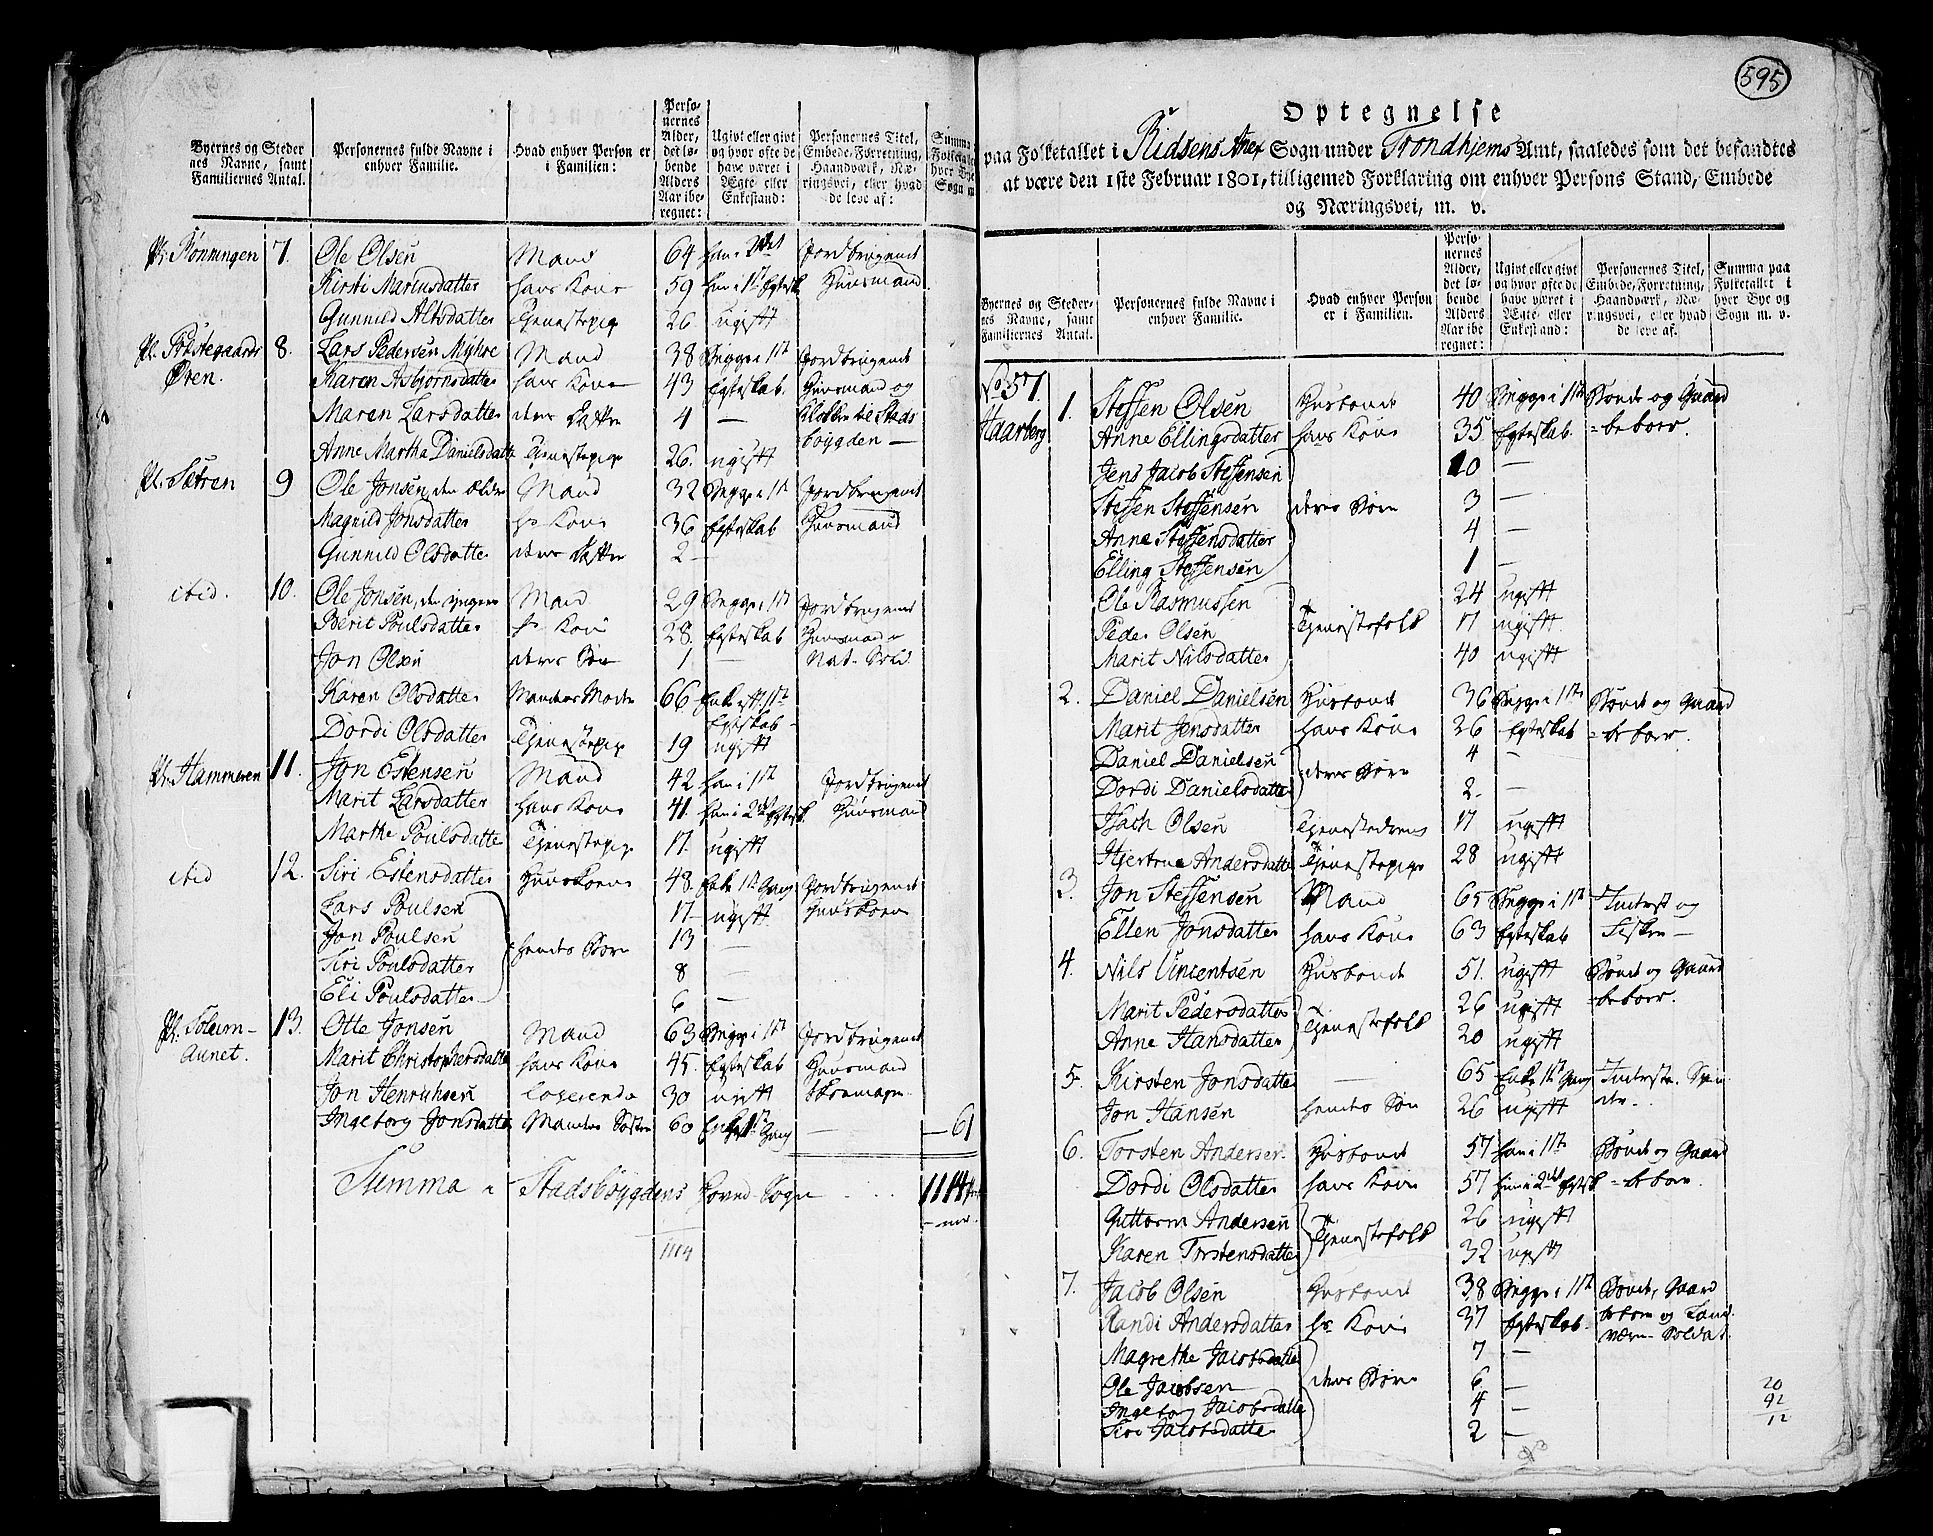 Byernes og Steder nes Navne, samt Familiernes Antal.
Personernes fulde Navne i enhver Familie.
Hvad enhver Person er i Familien:
Personernes Alder, det løbende Alders Aar iberegnet:
Ugivt eller givt og hvor ofte de have været i Ægte eller Enkestand:
Personernes Titel, Embede, Forretning, Haandværk, Næringsvei, eller hvad de leve af:
Summa Folketal hver Bye Sogn m
Pl. Rønningen 7. Ole Olsen Mand 64 han i 2det Jordbrugende
Kirsti Mariusdatter hans Kone 59 hun i 1ste Egtesk. Huusmand
Gunnild Altsdatter Tjenestepige 26 ugift
Pl. Præstegaards 8. Lars Pedersen Myhre Mand 38 Begge i 1ste Jordbrugende
Øren. Karen Asbjørnsdatter hans Kone 43 Egteskab. Huusmand og
Maren Larsdatter deres Datter 4 — Klokker til Stads
Anne Martha Danielsdatter Tjenestepige 26. ugift bøygden —
Pl. Sætren 9 Ole Jonsen, den Ældre Mand 32 Begge i 1ste Jordbrugende
Magnild Jonsdatter hs Kone 36 Egteskab Huusmand
Gunnild Olsdatter deres Datter 2 —
ibid. 10. Ole Jonsen, den yngere Mand 29 Begge i 1ste Jordbrugende
Berit Poulsdatter hs Kone 28. Egteskab Huusmand
Jon Olsen deres Søn 1 — Nat. Sold.
Karen Olsdatter Mandens Moder 66 Enke eft. 1ste Egteskab
Dordi Olsdatter Tjenestepige 19 ugift
Pl. Hammeren 11. Jon Estensen Mand 42 han i 1ste Jordbrugende
Marit Larsdatter hans Kone 41. hun i 2det Egtesk. Huusmand
Marthe Poulsdatter Tjenestepige 17. ugift
ibid 12. Siri Estensdatter Huuskone 48. Enke 1ste Gang Jordbrugende
Lars Poulsen 17 ugift Huuskone
Jon Poulsen hendes Børn 13 —
Siri Poulsdatter 8 —
Eli Poulsdatter 6 —
Pl. Solem- 13. Otte Jonsen Mand 63 Begge i 1ste Jordbrugende
aunet. Marit Christophersdatter hans Kone 45. Egteskab Huusmand
Jon Henrichsen Logerende 30 ugift Skomager
Ingeborg Jonsdatter Mandens Søster 60 Enke 1ste Gang — — 61
Summa i Stadsbøygdens Hoved-Sogn . . . 1114
1114
595
Optegnelse
paa Folketallet i Ridsens Anex Sogn under Trondhjems Amt, saaledes som det befandtes
at være den 1ste Februar 1801, tilligemed Forklaring om enhver Persons Stand, Embede
og Næringsvei, m. v.
Byernes og Stedernes Navne, samt Familiernes Antal.
Personernes fulde Navne i enhver Familie.
Hvad enhver Person er i Familien.
Personernes Alder, det løbende Alders Aar iberegnet:
Ugivt eller givt og hvor ofte de have været i Ægte eller Enkestand:
Personernes Titel, Embede, Forretning, Haandværk, Næringsvei, eller hvad de leve af.
Summa paa Folketallet i hver Bye og Sogn m. v.
No 57.
Haarberg 1. Steffen Olsen Husbonde 40 Begge i 1ste Bonde og Gaard
Anne Ellingsdatter hans Kone 35 Egteskab. =beboer.
Jens Jacob Steffensen 10 —
Steffen Steffensen deres Børn 3 —
Anne Steffensdatter 4 —
Elling Steffensen 1 —
Ole Rasmussen 24 ugift
Peder Olsen Tjenestefolk 17 ugift
Marit Nilsdatter 40 ugift
2. Daniel Danielsen Husbonde 36 Begge i 1ste Bonde og Gaard
Marit Jensdatter hans Kone 26 Egteskab =beboer.
Daniel Danielsen deres Børn 4 —
Dordi Danielsdatter 2. —
Hath Olsen Tjenestedreng 17 ugift
Hjertrue Andersdatter Tjenestepige 28 ugift
3. Jon Steffensen Mand 65 Begge i 1ste Inderst og
Ellen Jonsdatter hans Kone 63 Egteskab Fisker —
4. Nils Vincentsen Husbonde 51. ugift Bonde og Gaard
Marit Pedersdatter Tjenestefolk 26 ugift =beboer.
Anne Hansdatter 20 ugift
5. Kirsten Jonsdatter — 65 Enke 1ste Gang Inderste.
Jon Hansen hendes Søn 26 ugift
6. Torsten Andersen Husbonde 57 han i 1ste Bonde og Gaard
Dordi Olsdatter hans Kone 57 hun i 2det Egtesk. =beboer.
Guttorm Andersen Tjenestefolk 26 ugift
Karen Torstensdatter 32 ugift
7. Jacob Olsen Husbonde 38 Begge i 1ste Bonde, Gaard
Randi Andersdatter hs Kone 37 Egteskab. beboer og Land
Magrethe Jacobsdatter 7 — værn-Soldat.
Ole Jacobsen deres Børn 6 —
Ingeborg Jacobsdatter 4 —
Siri Jacobsdatter 2 —
20
92
12